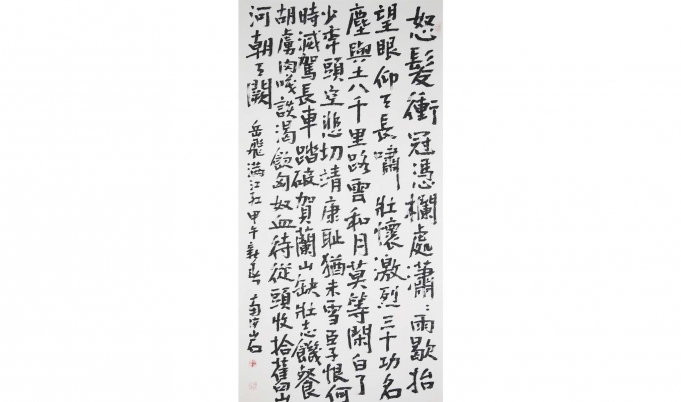 怒髮衝冠憑欄處蕭:雨歇抬
望眼仰天長嘯壯懷激烈三十功名
塵與土八千里路雲和月莫等閑白了
少年頭空悲切靖康耻猶未雪臣子恨何
時滅駕長車踏破賀蘭山缺壯志饑餐
胡虜肉笑談渴飲匈奴血待從頭收拾舊山
河朝天闕 岳飛滿江紅甲午新春